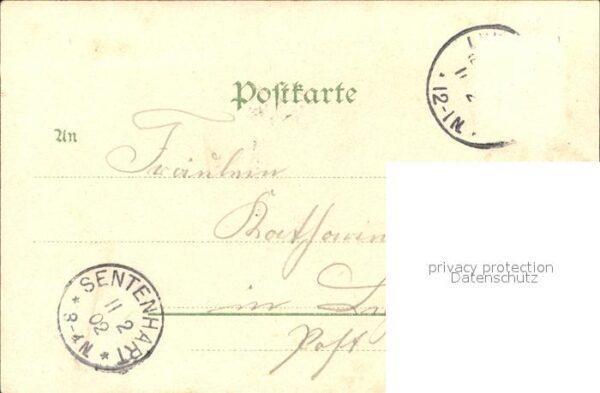 Postkarte
12-1N.
11 2
An
Fräulein
Katharin
privacy protection
Datenschutz
in
Post
SENTENHART
11 2
02
3-4N